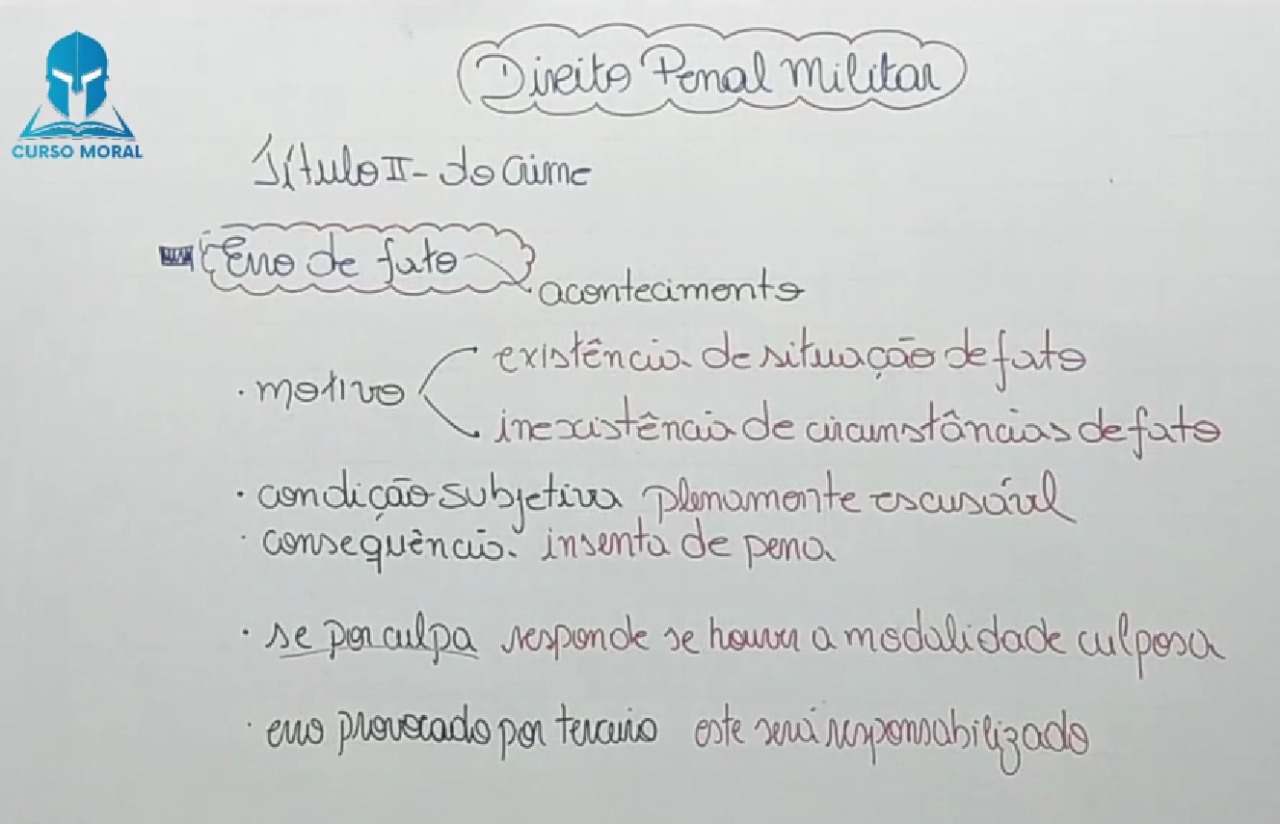 CURSO MORAL
Direito Penal Militar
Título II - do crime
Erro de fato
acontecimento
. motivo
existência de situação de fato
inexistência de circunstâncias de fato
. condição subjetiva plenamente escusável
. consequência. insenta de pena
. se por culpa responde se houver a modalidade culposa
. erro provocado por terceiro este será responsabilizado